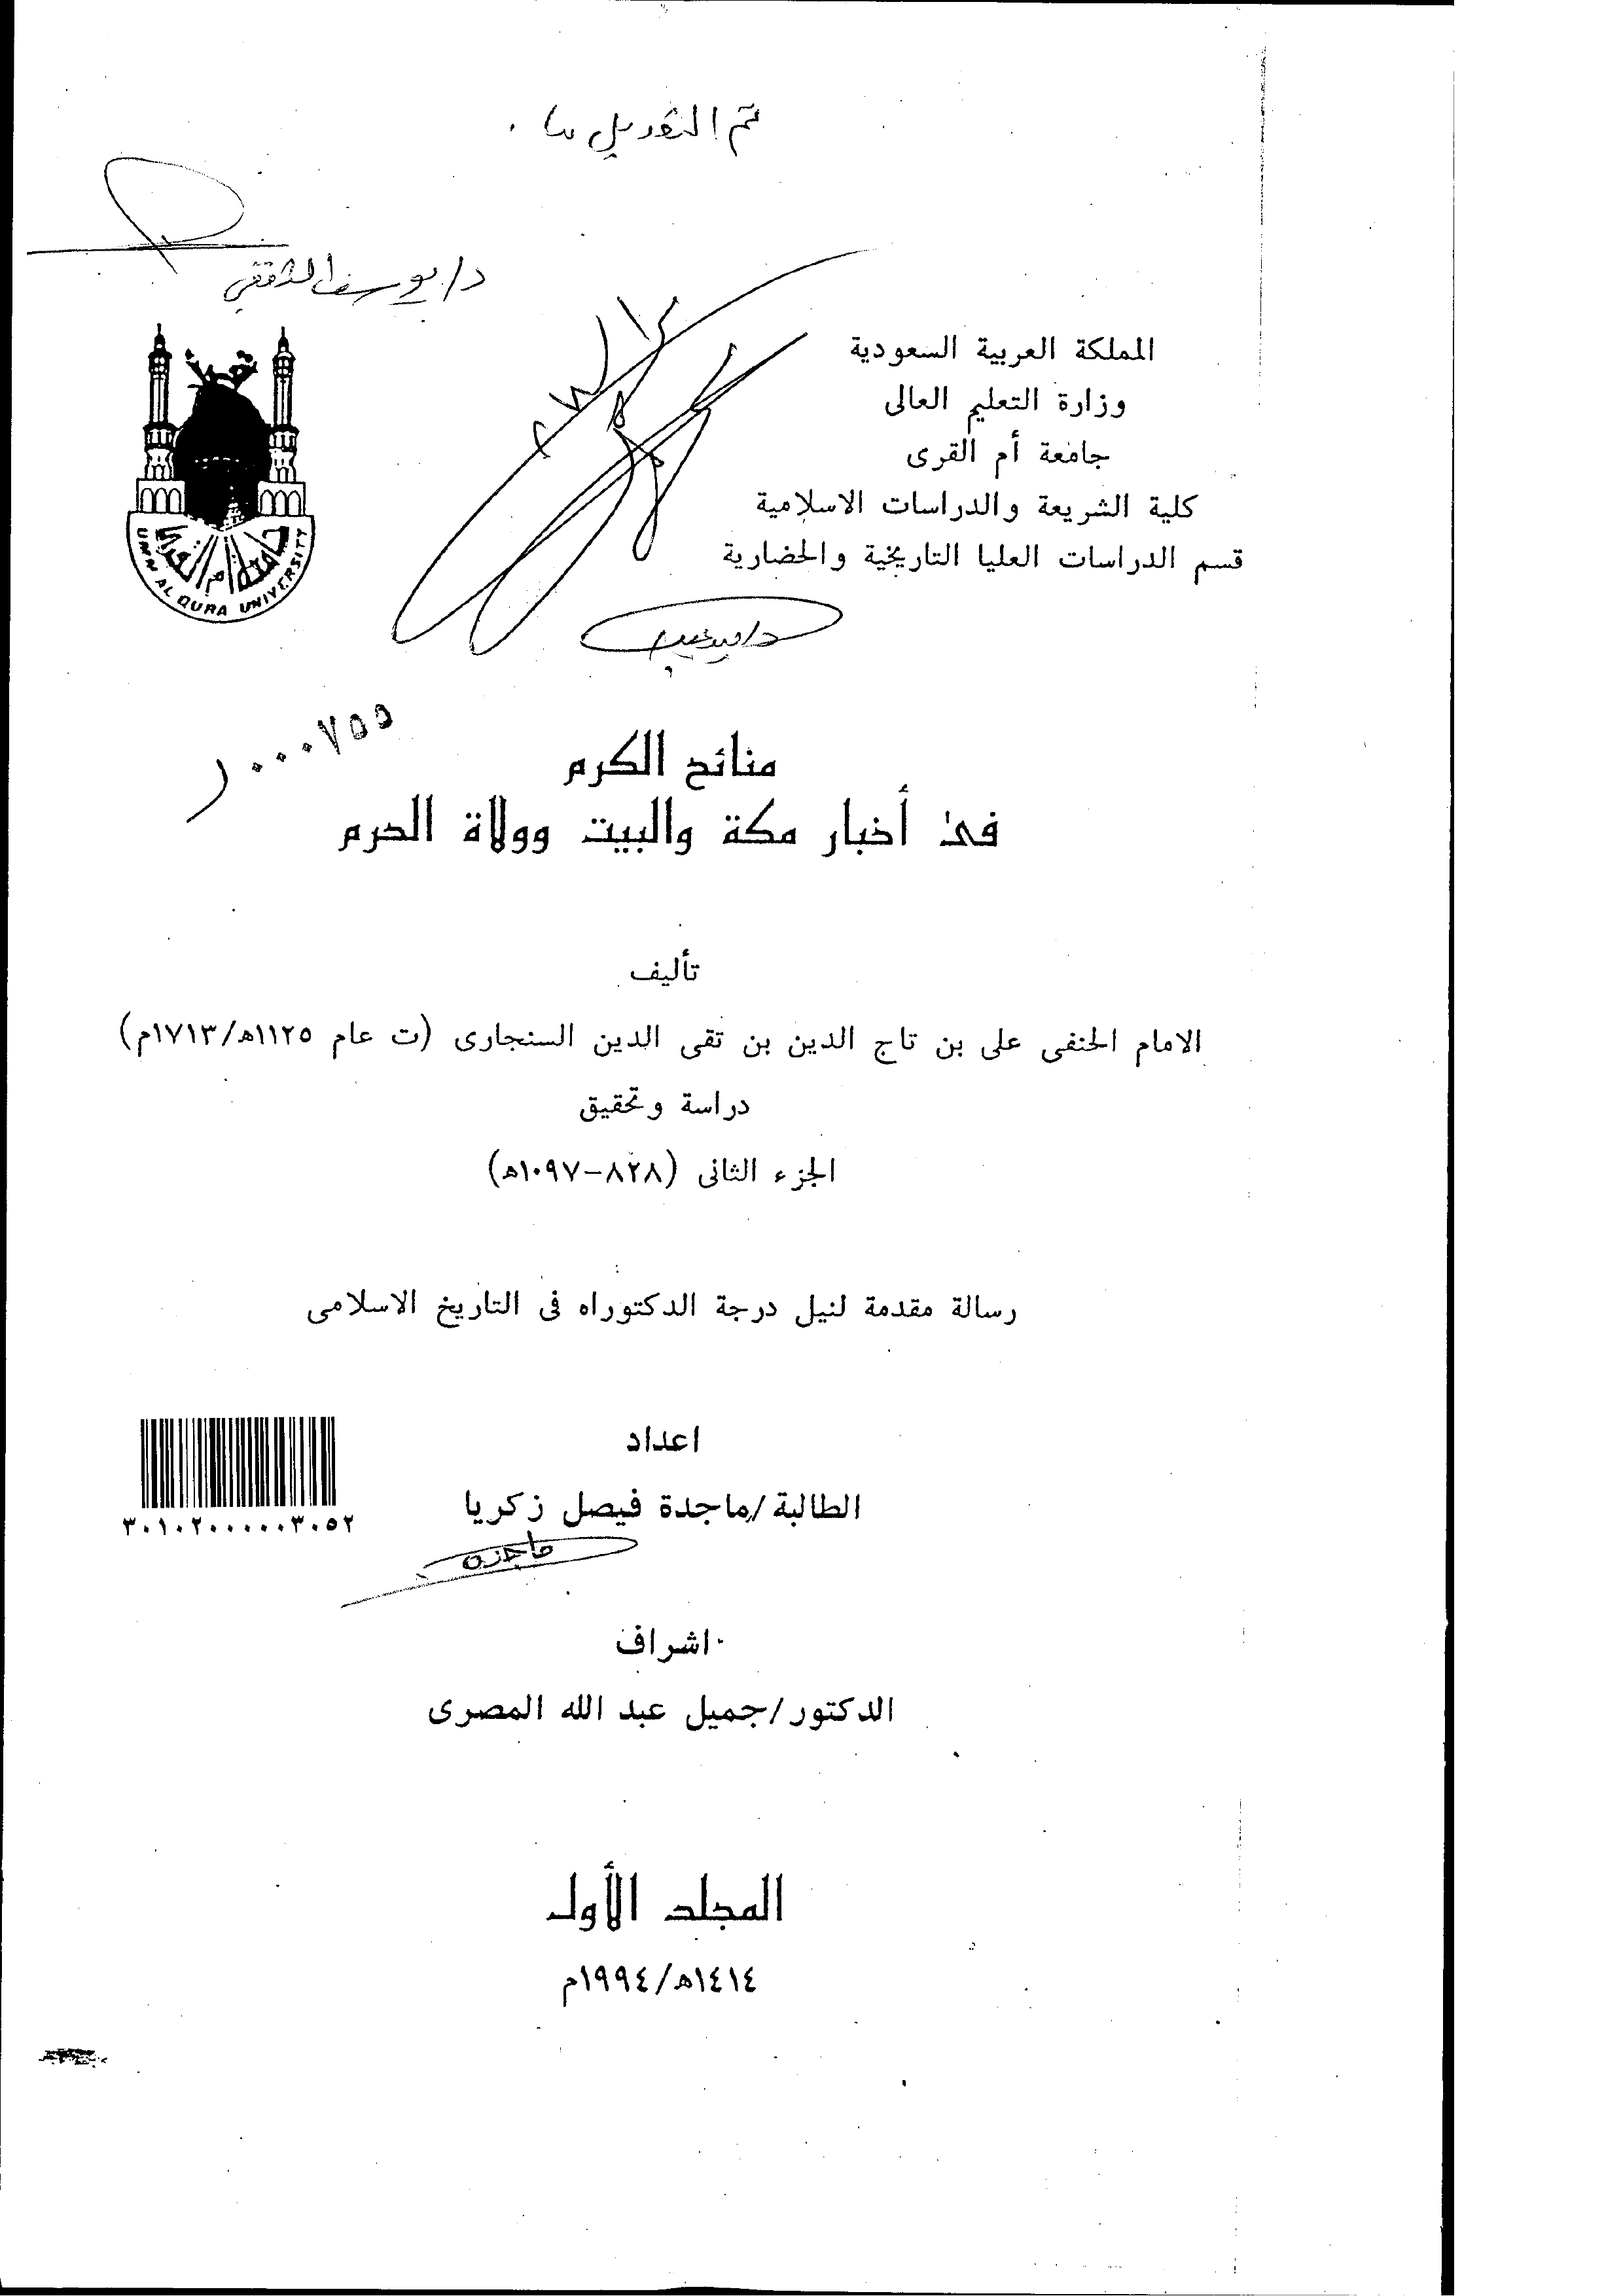 تم التعديل
د/يوسف الثقفي
المملكة العربية السعودية
وزارة التعليم العالى
جامعة أم القرى
كلية الشريعة والدراسات الاسلامية
قسم الدراسات العليا التاريخية والحضارية
UMM AL QURA UNIVERSITY
٠٠٠٧٥٥
منائح الكرم
فى أخبار مكة والبيت وولاة الحرم
تأليف
الامام الحنفى على بن تاج الدين بن تقى الدين السنجارى (ت عام ١١٢٥ه/١٧١٣م)
دراسة وتحقيق
الجزء الثانى (٨٢٨-١٠٩٧ه)
رسالة مقدمة لنيل درجة الدكتوراه فى التاريخ الاسلامى
اعداد
الطالبة/ماجدة فيصل زكريا
٣٠١٠٢٠٠٠٠٠٣٠٥٢
ماجدة
اشراف
الدكتور/جميل عبد الله المصرى
المجلد الأول
١٤١٤ه/١٩٩٤م